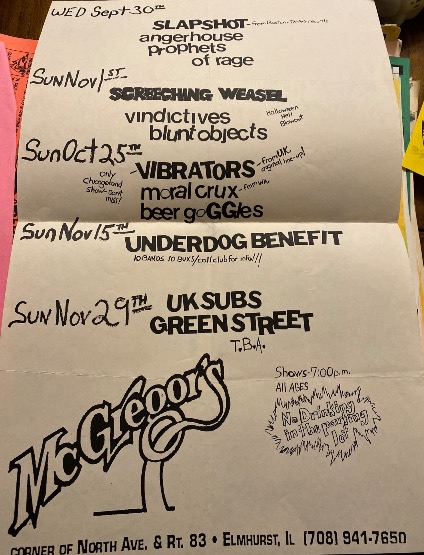 WED Sept-30TH
SLAPSHOT - from Boston-Taang records
angerhouse
prophets
of rage
Sun Nov 1ST
SCREECHING WEASEL
vindictives
blunt objects
Halloween
Hell
Blowout
Sun Oct 25TH
only
Chicagoland
show-Don't
miss!
VIBRATORS - from UK
original line-up!
moral crux - from WA
beer goGGles
Sun Nov 15TH UNDERDOG BENEFIT
10 BANDS 10 BUKS/call club for info!!!
Sun Nov 29TH UK SUBS
GREEN STREET
T.B.A.
McGregor's
Shows-7:00p.m.
All AGES
No Drinking
in the parking
lot
CORNER OF NORTH AVE. & RT. 83 • ELMHURST, IL (708) 941-7650